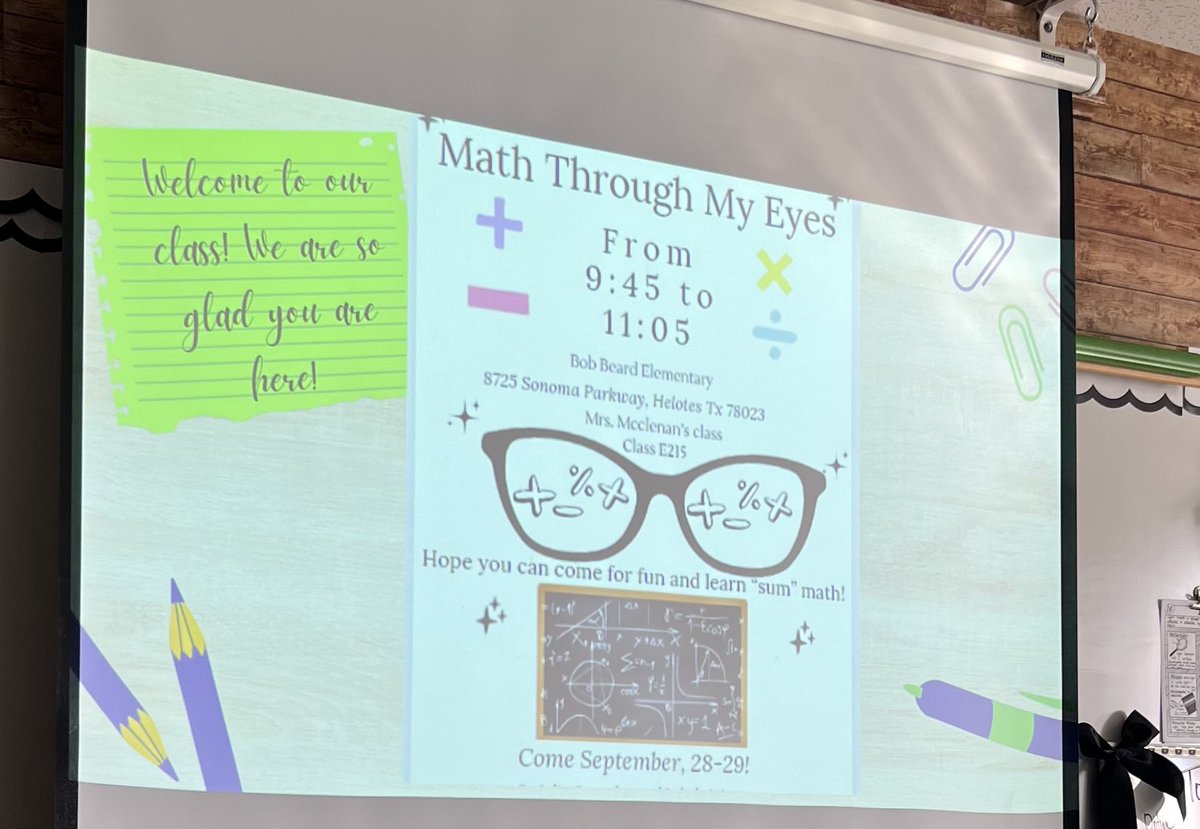 Welcome to our
class! We are so
glad you are
here!
Math Through My Eyes
From
9:45 to
11:05
Bob Beard Elementary
8725 Sonoma Parkway, Helotes Tx 78023
Mrs. Mcclenan's class
Class E215
Hope you can come for fun and learn "sum" math!
xy=1
Come September, 28-29!